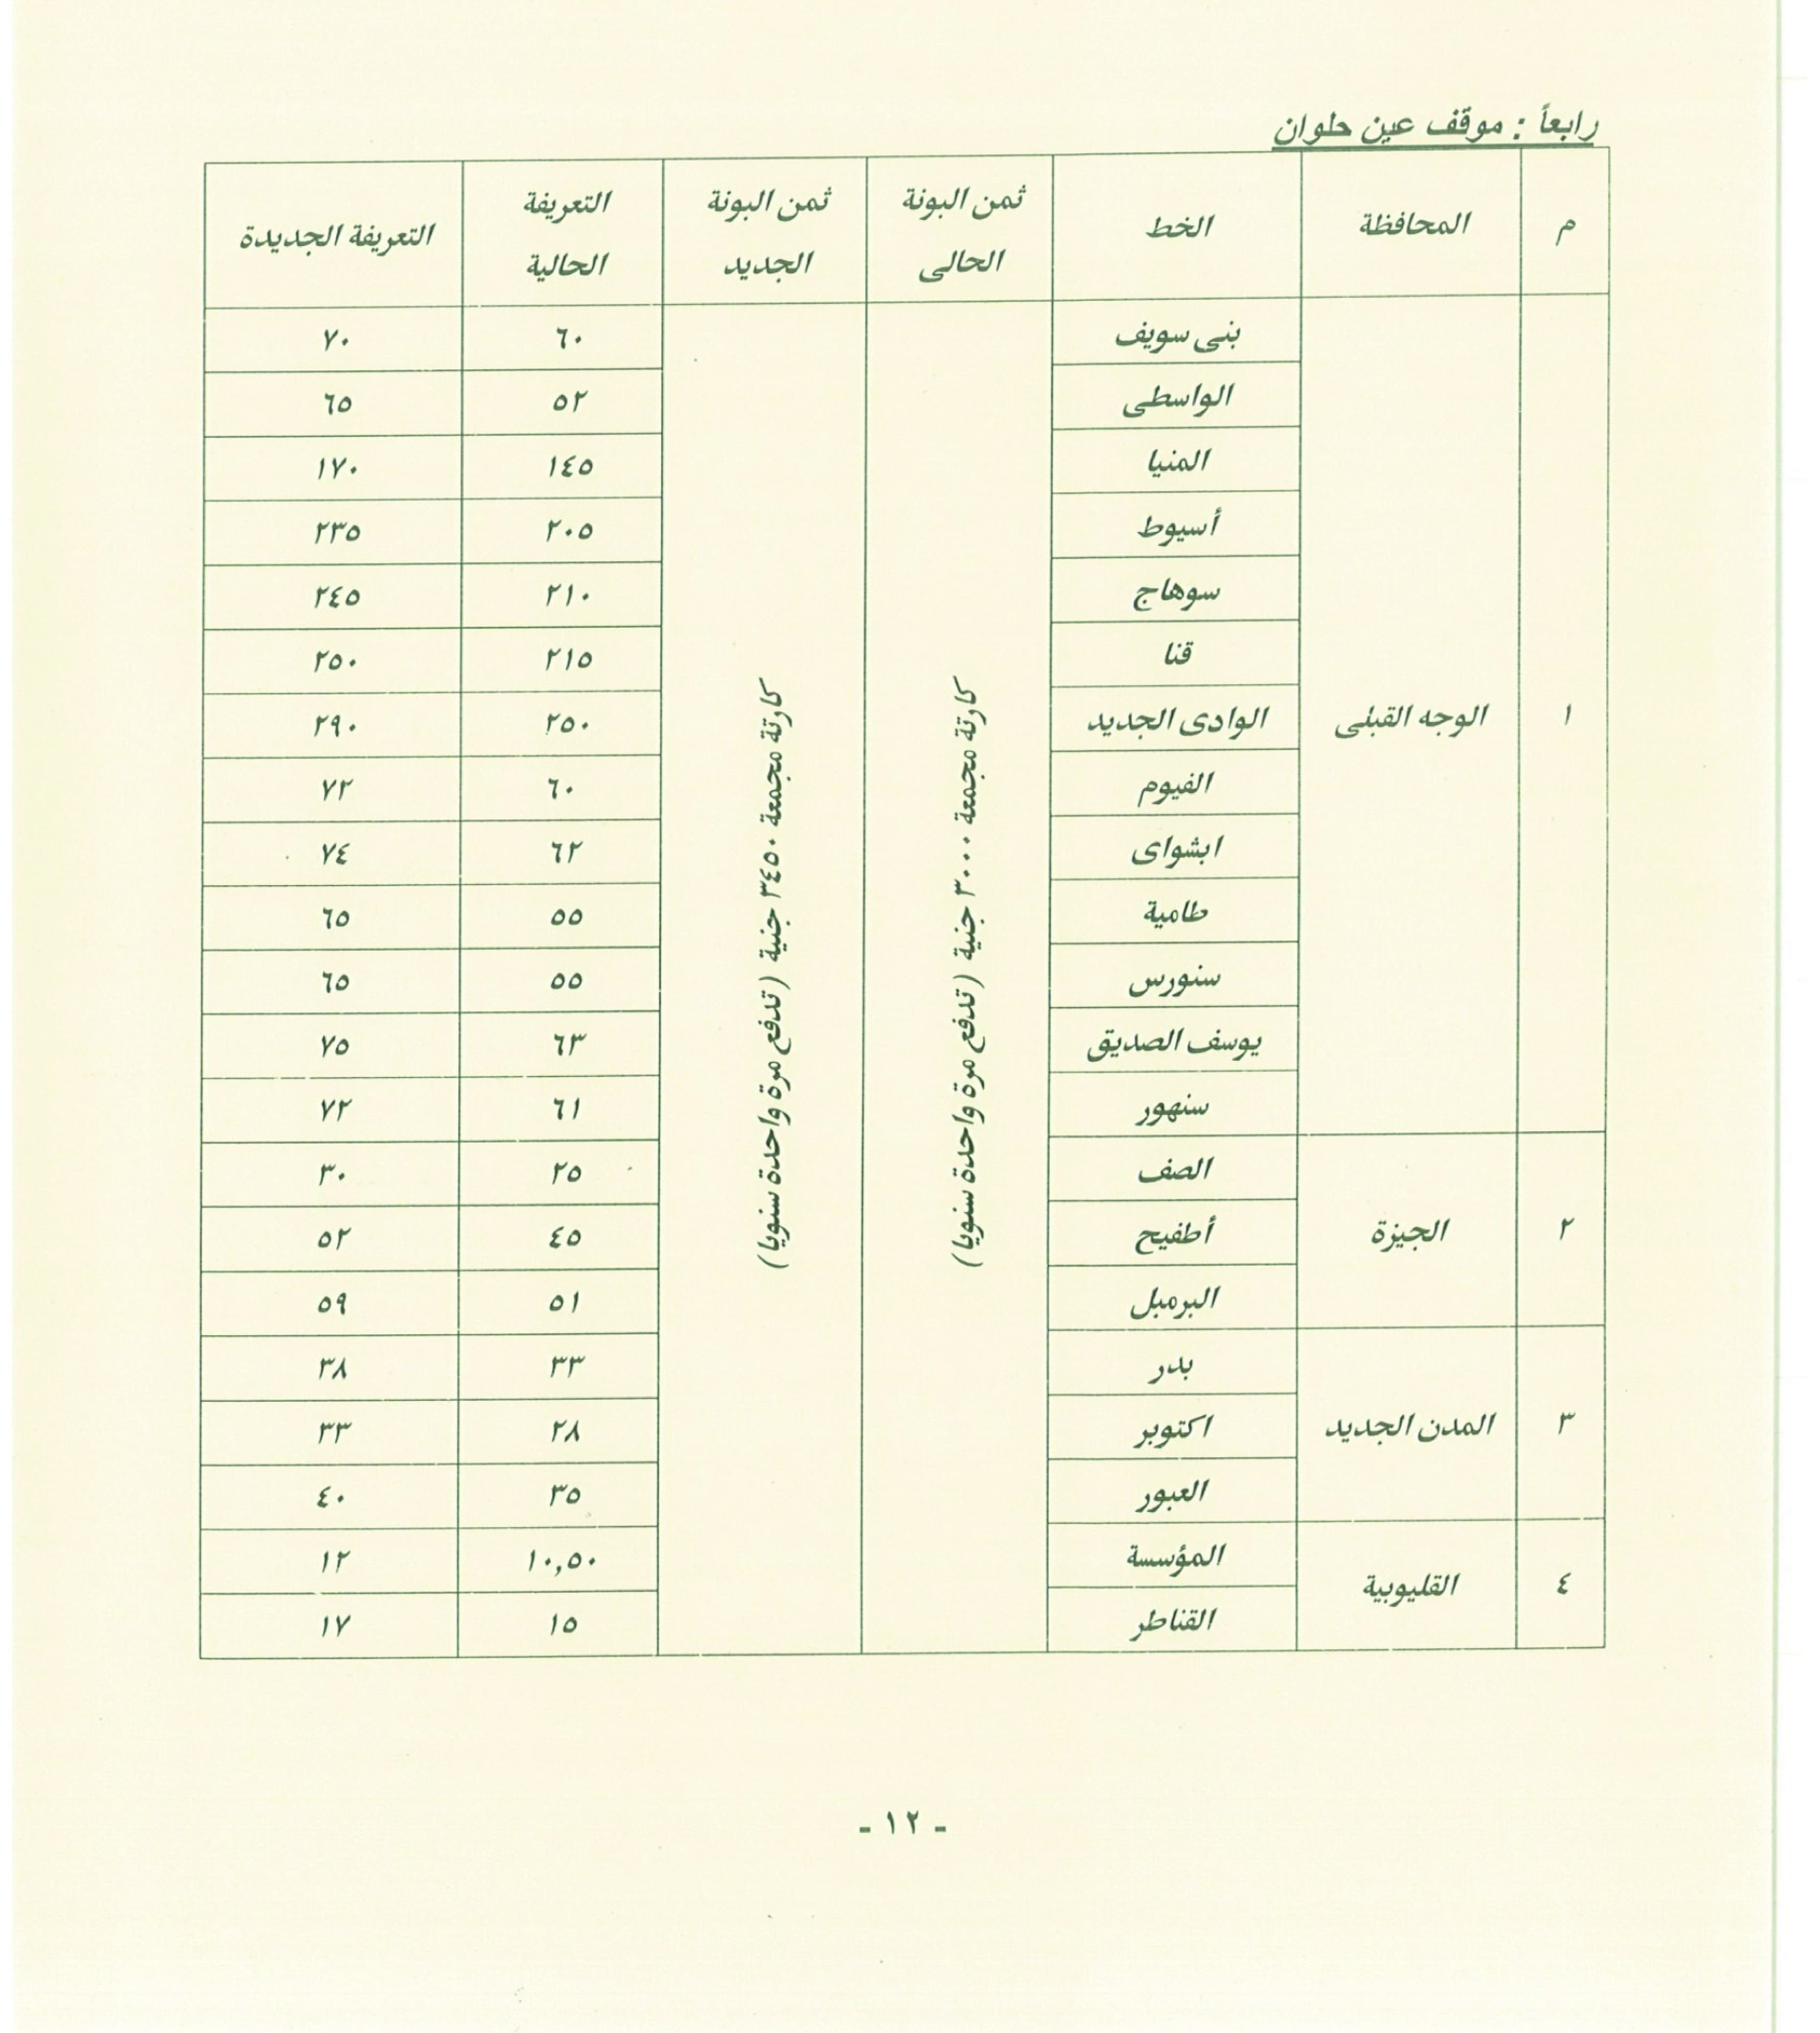 رابعاً : موقف عين حلوان
م المحافظة الخط ثمن البونة الحالى ثمن البونة الجديد التعريفة الحالية التعريفة الجديدة
١ الوجه القبلى بنى سويف كارتة مجمعة ٣٠٠٠ جنية (تدفع مرة واحدة سنويا) كارتة مجمعة ٣٤٥٠ جنية (تدفع مرة واحدة سنويا) ٦٠ ٧٠
الواسطى ٥٢ ٦٥
المنيا ١٤٥ ١٧٠
أسيوط ٢٠٥ ٢٣٥
سوهاج ٢١٠ ٢٤٥
قنا ٢١٥ ٢٥٠
الوادى الجديد ٢٥٠ ٢٩٠
الفيوم ٦٠ ٧٢
ابشواى ٦٢ ٧٤
طامية ٥٥ ٦٥
سنورس ٥٥ ٦٥
يوسف الصديق ٦٣ ٧٥
سنهور ٦١ ٧٢
٢ الجيزة الصف ٢٥ ٣٠
أطفيح ٤٥ ٥٢
البرمبل ٥١ ٥٩
٣ المدن الجديد بدر ٣٣ ٣٨
اكتوبر ٢٨ ٣٣
العبور ٣٥ ٤٠
٤ القليوبية المؤسسة ١٠,٥٠ ١٢
القناطر ١٥ ١٧
- ١٢ -